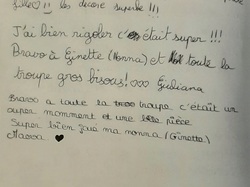 les decore superbe !!!
J'ai bien rigoler c'était super !!!
Bravo à Ginette (Nonna) et toute la
troupe gros bisous! xxx Giuliana
Bravo a toute la troupe c'était un
super momment et une pièce
super bien joué ma nonna (Ginette)
Maeva ♥